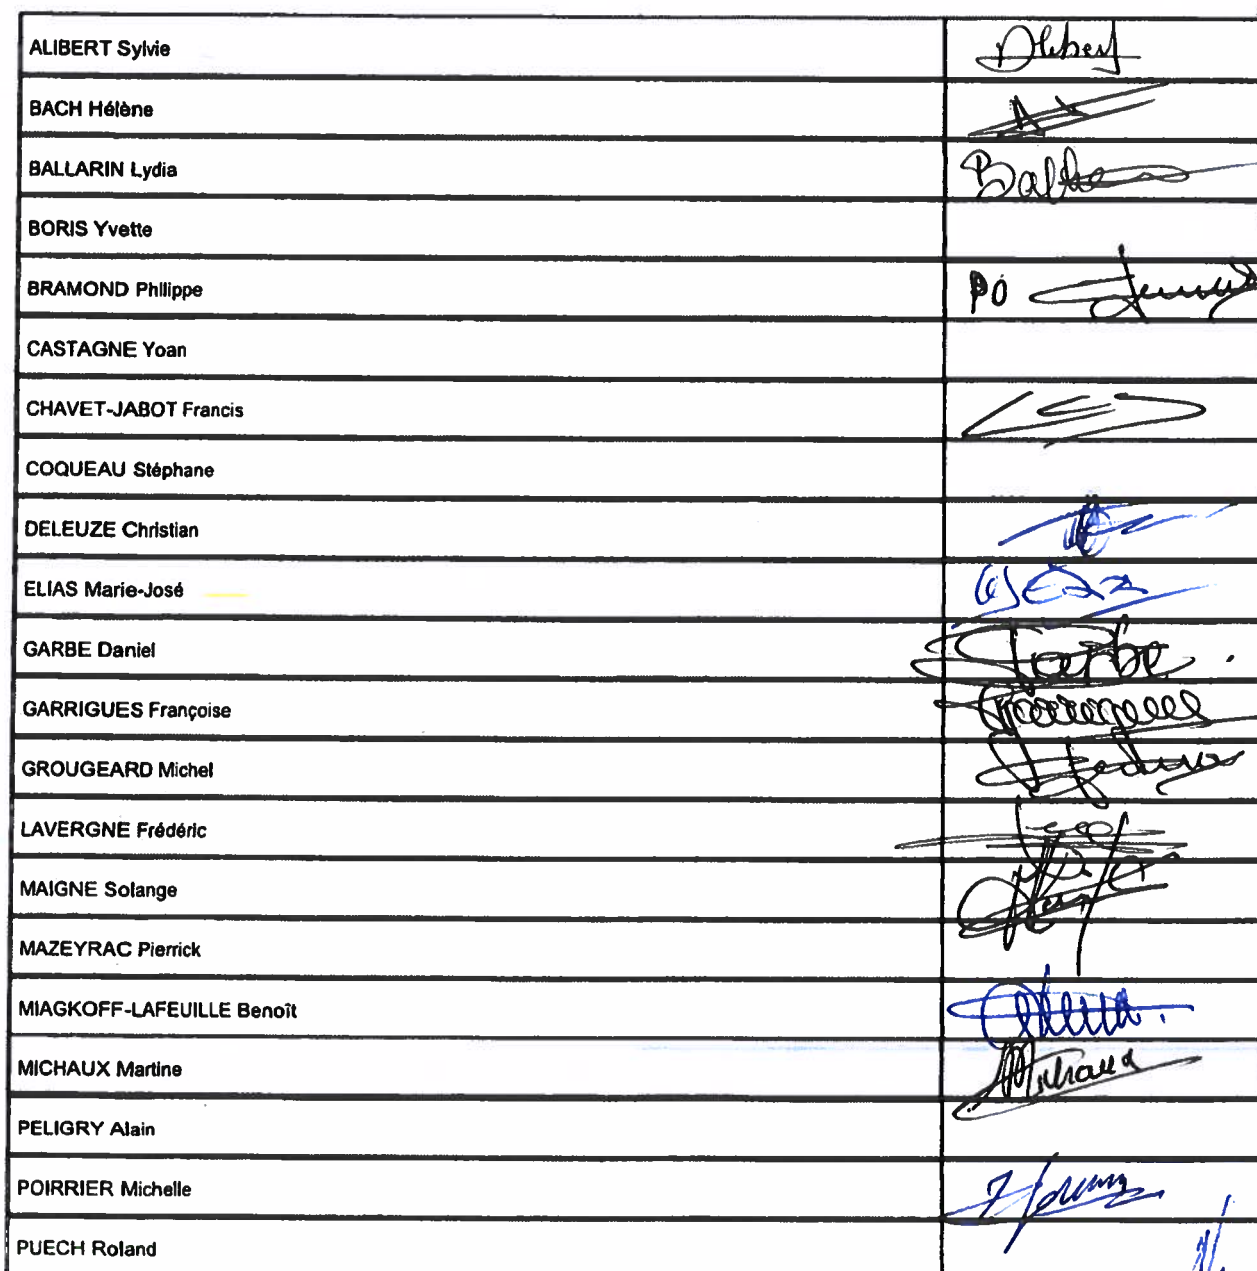 ALIBERT Sylvie
BACH Hélène
BALLARIN Lydia
BORIS Yvette
BRAMOND Philippe PO
CASTAGNE Yoan
CHAVET-JABOT Francis
COQUEAU Stéphane
DELEUZE Christian
ELIAS Marie-José
GARBE Daniel Garbe
GARRIGUES Françoise
GROUGEARD Michel
LAVERGNE Frédéric
MAIGNE Solange
MAZEYRAC Pierrick
MIAGKOFF-LAFEUILLE Benoît
MICHAUX Martine
PELIGRY Alain
POIRRIER Michelle
PUECH Roland